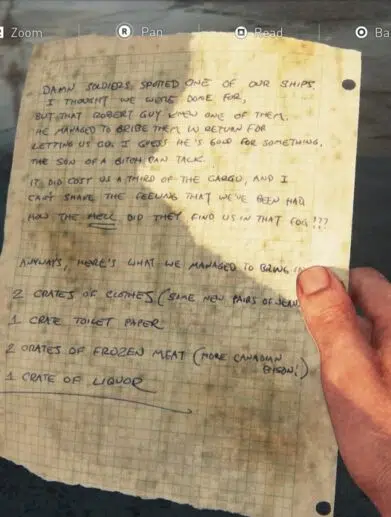 Zoom R Pan Read Ba
DAMN SOLDIERS, SPOTTED ONE OF OUR SHIPS.
I THOUGHT WE WERE DONE FOR,
BUT THAT ROBERT GUY KNEW ONE OF THEM.
HE MANAGED TO BRIBE THEM IN RETURN FOR
LETTING US GO. I GUESS HE'S GOOD FOR SOMETHING.
THE SON OF A BITCH CAN TALK.
IT DID COST US A THIRD OF THE CARGO, AND I
CAN'T SHAKE THE FEELING THAT WE'VE BEEN HAD
HOW THE HELL DID THEY FIND US IN THAT FOG???
ANYWAYS, HERE'S WHAT WE MANAGED TO BRING IN
2 CRATES OF CLOTHES (SOME NEW PAIRS OF JEAN
1 CRATE TOILET PAPER
2 CRATES OF FROZEN MEAT (MORE CANADIAN
BISON!)
1 CRATE OF LIQUOR